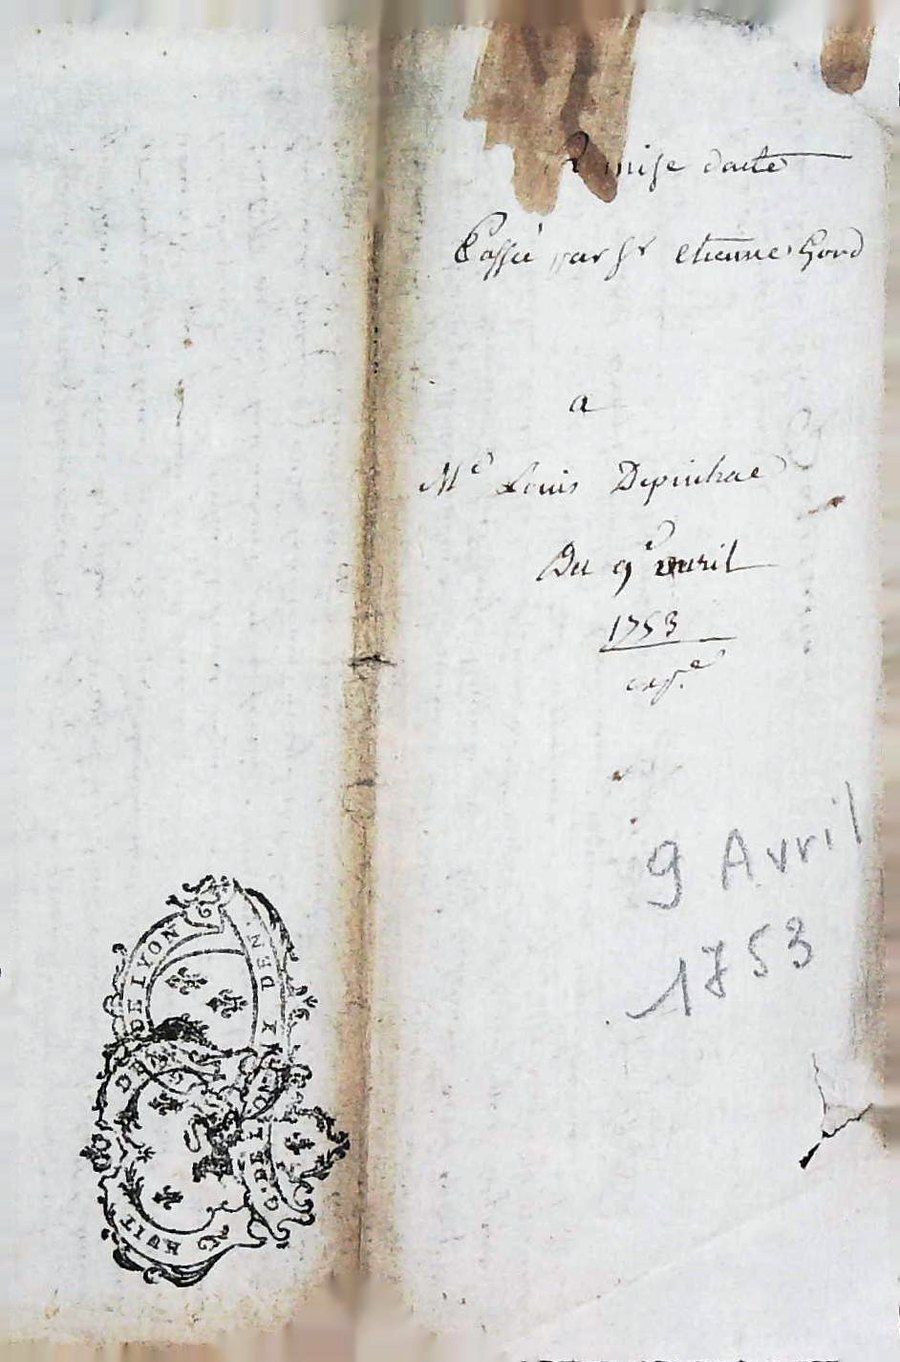 Remise dacte
Passée par Sr etienne Gord
a
Me Louis Depinhac
Du 9e avril
1753
expe
9 Avril
1753
DE LYON
DEN
HUIT
G. DE L